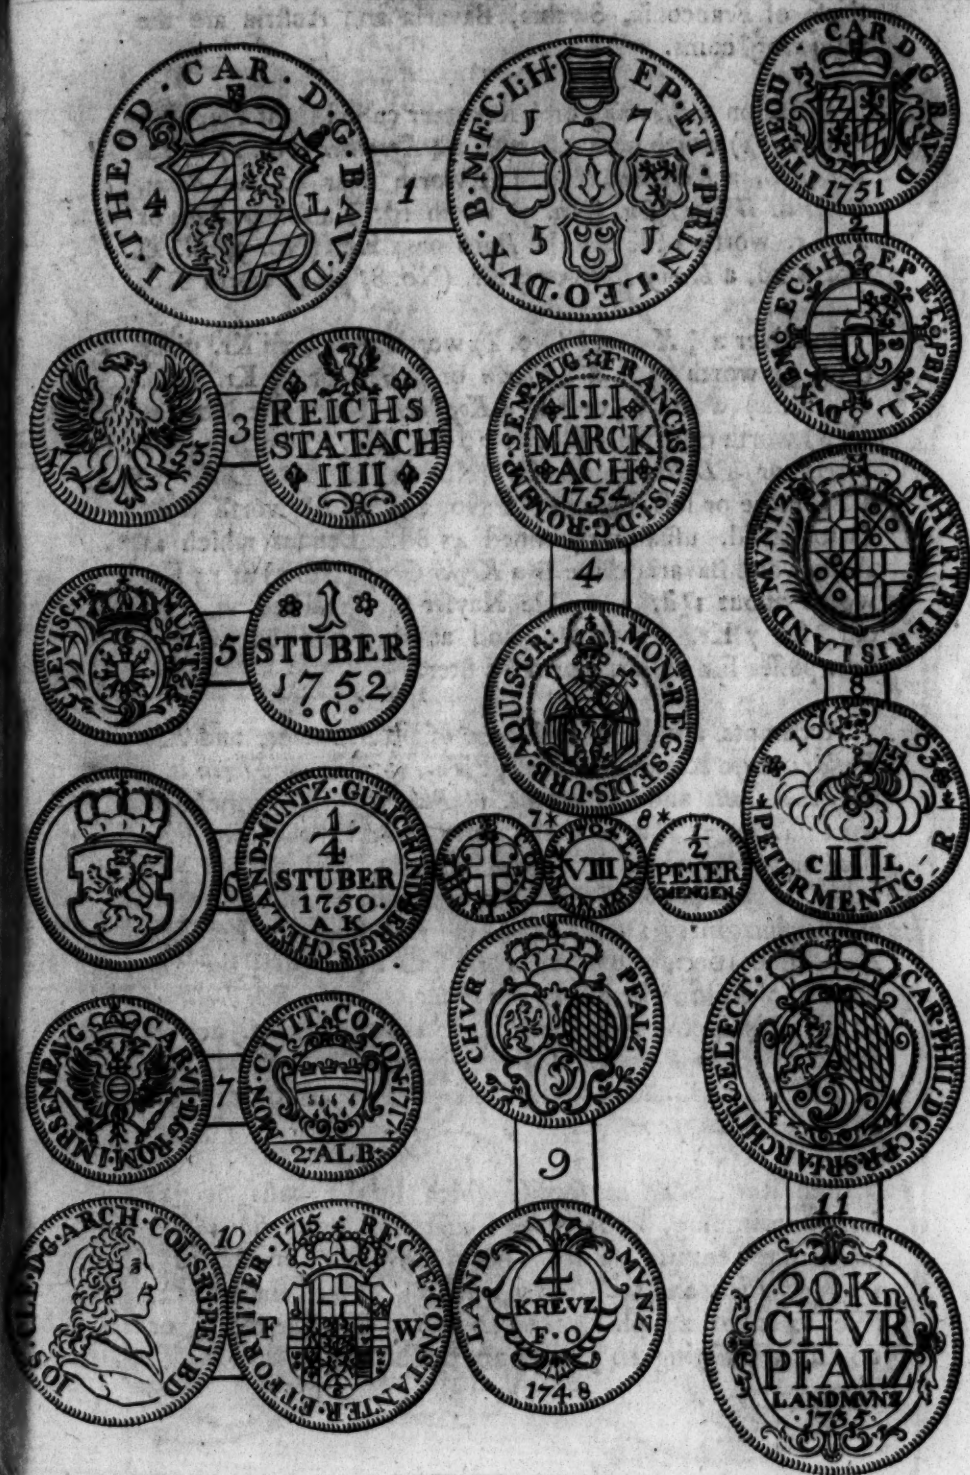 I · THEOD · CAR · D · G · BAV · D
4 L
1
B · M · F · C · L · H · EP · ET · PRIN · LEO · DVX ·
J 7
5 J
I THEOD · CAR D G BAV D
1751
2
ECLH EP ET PRIN L DVX BM
17
3
REICHS
STAT ACH
IIII
FRANCISCUS · I · D · G · ROM · IMP · SEMP · AUG
I·I·I
MARCK
ACH
1754
4
MON · REG · SEDIS · URB · AQUIS · GR:
CHVRTRIERIS LAND MUNTZ
8
16 93
C III L
PETERMENTG R
CLEVISCHE MÜNTZ
5
1
STUBER
1752
· C ·
6
LAND · MUNTZ · GULICH UND BERGISCHE
1/4
STUBER
1750 ·
A K
7* 8*
VIII
1/2
PETER
MENGEN
CAR · VI · D · G · ROM · IMP · SEMP AUG
7
MON · CIVIT · COLON · 171
2 · ALB ·
CHVR PFALZ
9
LAND MVNZ
4
KREVZ
F · O
1748
CAR · PHIL · D · G · C · P · R · S · R · I · ARCHIT & ELECT ·
11
20 · Kr
CHVR
PFALZ
LANDMVNZ
· 1735 ·
IOS · CLE · D · G · ARCH · COL · S · R · I · P · EL · BD
10
1715 RECTE · CONSTANTER · ET FORTITER ·
F W